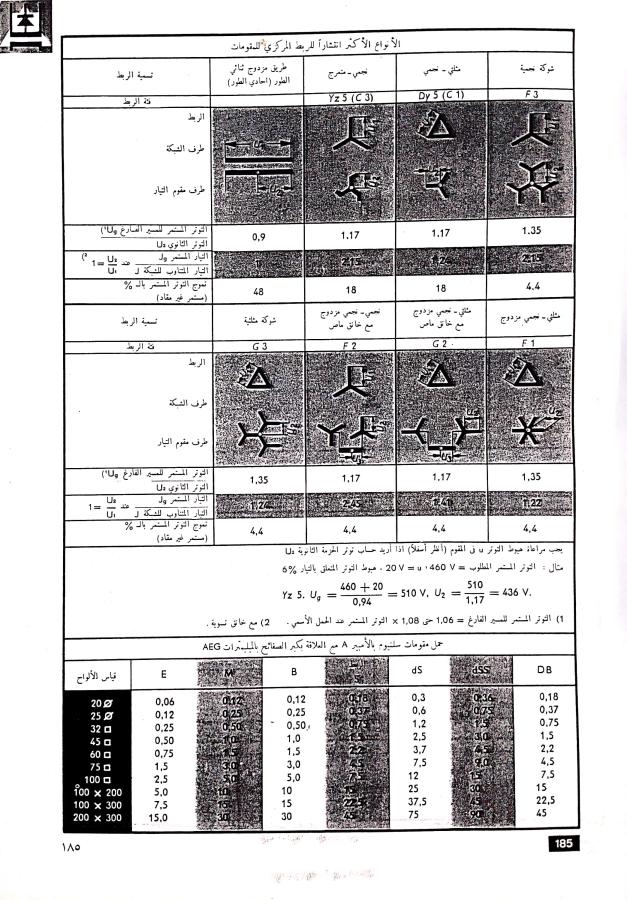 الأنواع الأكثر انتشاراً للربط المركزي للمقومات
تسمية الربط
طريق مزدوج ثنائي الطور (احادي الطور)
نجمي - متعرج
مثلثي - نجمي
شوكة نجمية
فئة الربط
Yz 5 (C 3)
Dy 5 (C 1)
F 3
الربط
طرف الشبكة
طرف مقوم التيار
التوتر المستمر للمسير الفارغ Ug (1
التوتر الثانوي U₂
0,9 1.17 1.17 1.35
التيار المستمر Jg
التيار المتناوب للشبكة J
عند U₂ / U₁ = 1
2.15 1.24 2.15
تموج التوتر المستمر بالـ %
(مستمر غير مقاد)
48 18 18 4.4
تسمية الربط
شوكة مثلثية
نجمي - نجمي مزدوج مع خانق ماص
مثلثي - نجمي مزدوج مع خانق ماص
مثلثي - نجمي مزدوج
فئة الربط
G 3 F 2 G 2 F 1
الربط
طرف الشبكة
طرف مقوم التيار
التوتر المستمر للمسير الفارغ Ug (1
التوتر الثانوي U₂
1,35 1.17 1,17 1,35
التيار المستمر Jg
التيار المتناوب للشبكة J
عند U₂ / U₁ = 1
1,24 2.43 1.41 1.22
تموج التوتر المستمر بالـ %
(مستمر غير مقاد)
4,4 4,4 4,4 4,4
يجب مراعاة هبوط التوتر u في المقوم (أنظر أسفلاً) اذا أريد حساب توتر الحزمة الثانوية U₂
مثال : التوتر المستمر المطلوب = 460 V ، u = 20 V ، هبوط التوتر المتعلق بالتيار 6%
Yz 5. Ug = 460 + 20 / 0,94 = 510 V, U₂ = 510 / 1,17 = 436 V.
1) التوتر المستمر للمسير الفارغ = 1,06 حتى 1,08 × التوتر المستمر عند الحمل الأسمي. 2) مع خانق تسوية .
حمل مقومات سلنيوم بالأمبير A مع العلاقة بكبر الصفائح بالمليمترات AEG
قياس الألواح E M B dS dSS DB
20 ⌀ 0,06 0,12 0,12 0,18 0,3 0,36 0,18
25 ⌀ 0,12 0,25 0,25 0,37 0,6 0,75 0,37
32 □ 0,25 0,50 0,50 0,75 1,2 1,5 0,75
45 □ 0,50 1,0 1,0 1,5 2,5 3,0 1,5
60 □ 0,75 1,5 1,5 2,2 3,7 4,5 2,2
75 □ 1,5 3,0 3,0 4,5 7,5 9,0 4,5
100 □ 2,5 5,0 5,0 7,5 12 15 7,5
100 × 200 5,0 10 10 15 25 30 15
100 × 300 7,5 15 15 22,5 37,5 45 22,5
200 × 300 15,0 30 30 45 75 90 45
١٨٥
185